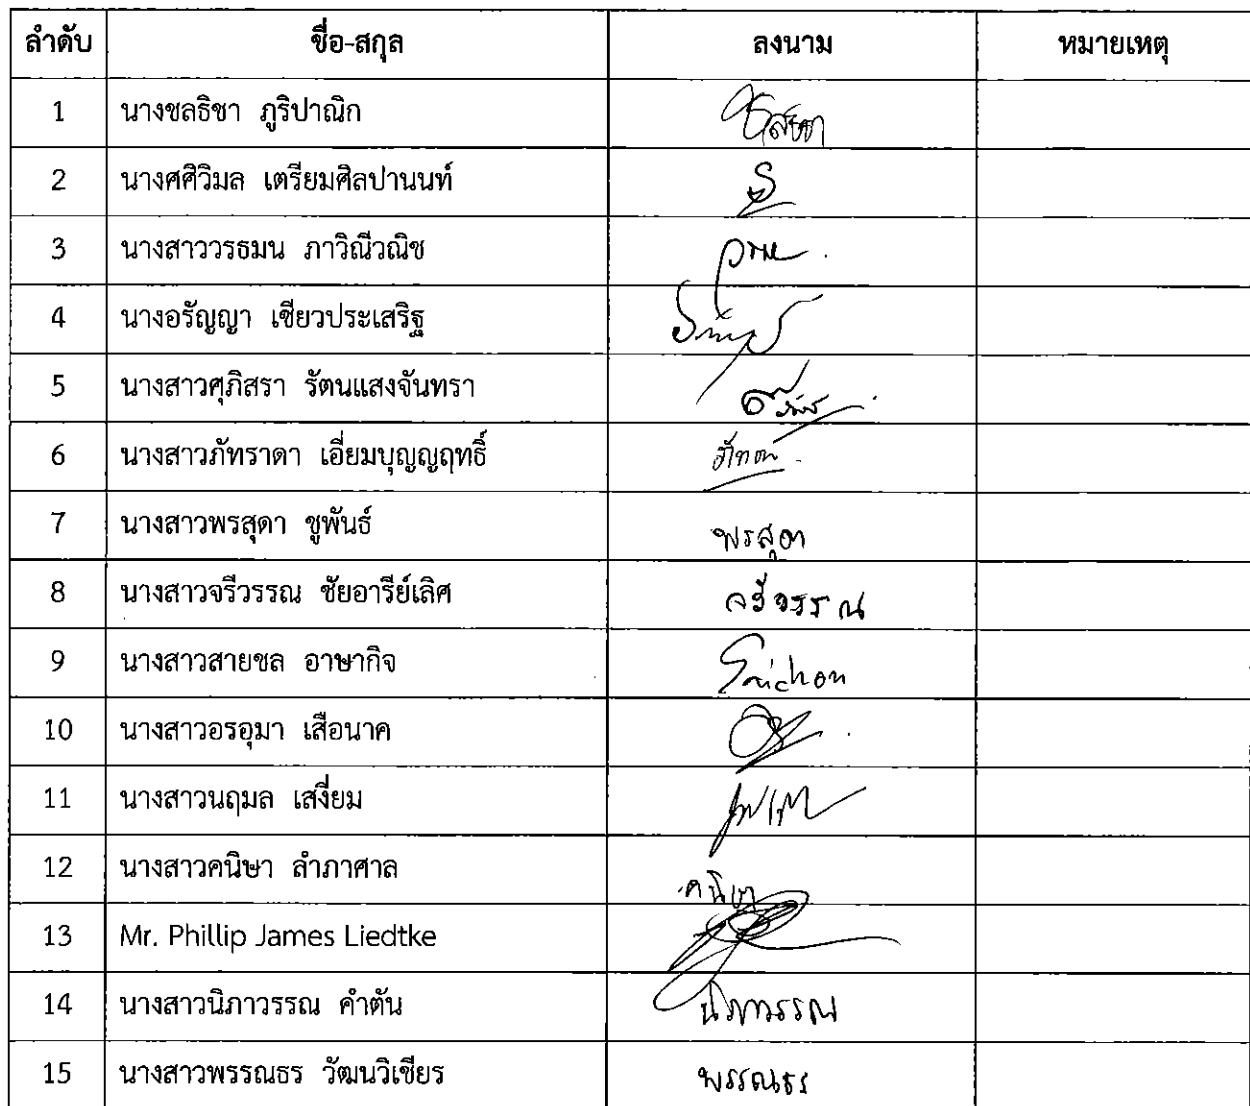 ลำดับ ชื่อ-สกุล ลงนาม หมายเหตุ
1 นางชลธิชา ภูริปาณิก
2 นางศศิวิมล เตรียมศิลปานนท์
3 นางสาววรธมน ภาวิณีวณิช
4 นางอรัญญา เชียวประเสริฐ
5 นางสาวศุภิสรา รัตนแสงจันทรา
6 นางสาวภัทราดา เอี่ยมบุญญฤทธิ์
7 นางสาวพรสุดา ชูพันธ์ พรสุดา
8 นางสาวจรีวรรณ ชัยอารีย์เลิศ จรีวรรณ
9 นางสาวสายชล อาษากิจ Saichon
10 นางสาวอรอุมา เสือนาค
11 นางสาวนฤมล เสงี่ยม
12 นางสาวคนิษา ลำภาศาล คนิษา
13 Mr. Phillip James Liedtke
14 นางสาวนิภาวรรณ คำตัน นิภาวรรณ
15 นางสาวพรรณธร วัฒนวิเชียร พรรณธร